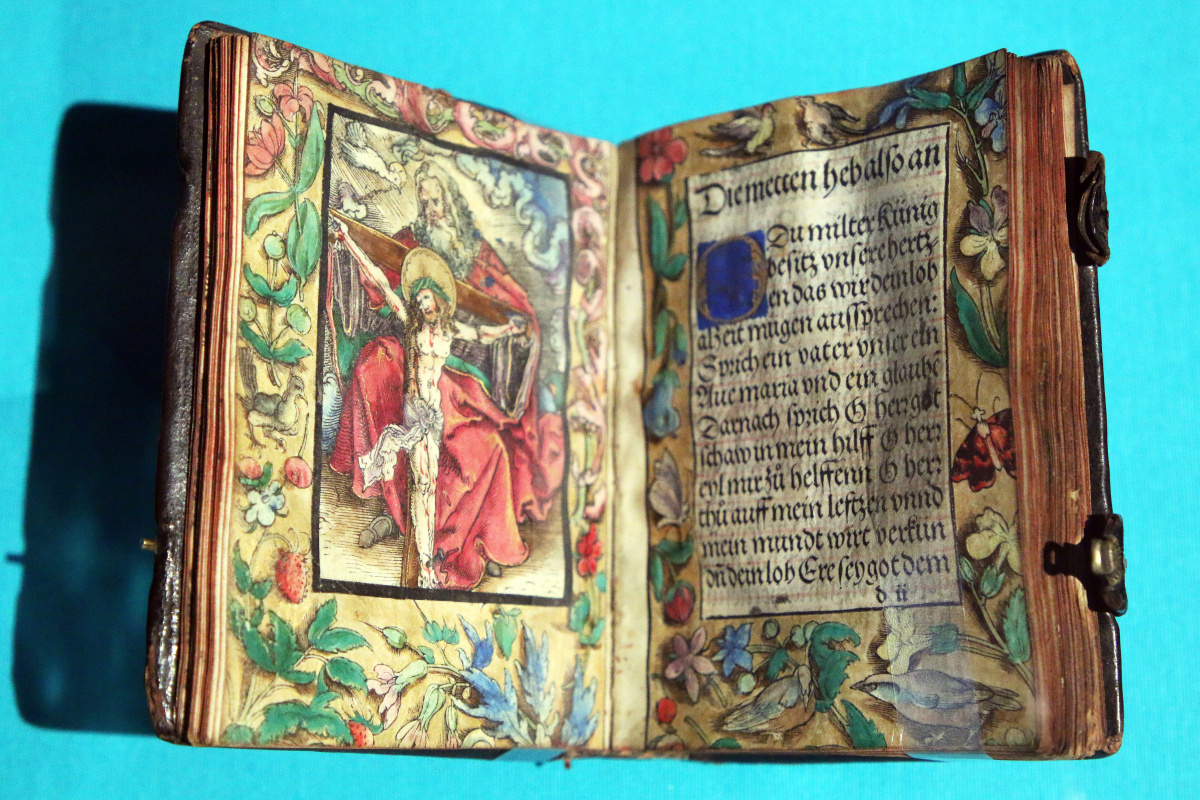 Die metten heb also an
O Du milter Künig
besitz vnsere hertz⸗
en das wir dein lob
alzeit mugen aussprechen:
Sprich ein vater vnser ein
Aue maria vnd ein glaube
Darnach sprich O herr got
schaw in mein hilff O herr
eyl mir zů helffenn O herr
thů auff mein leftzen vnnd
mein mundt wirt verkün
dñ dein lob Ere sey got dem
d ii